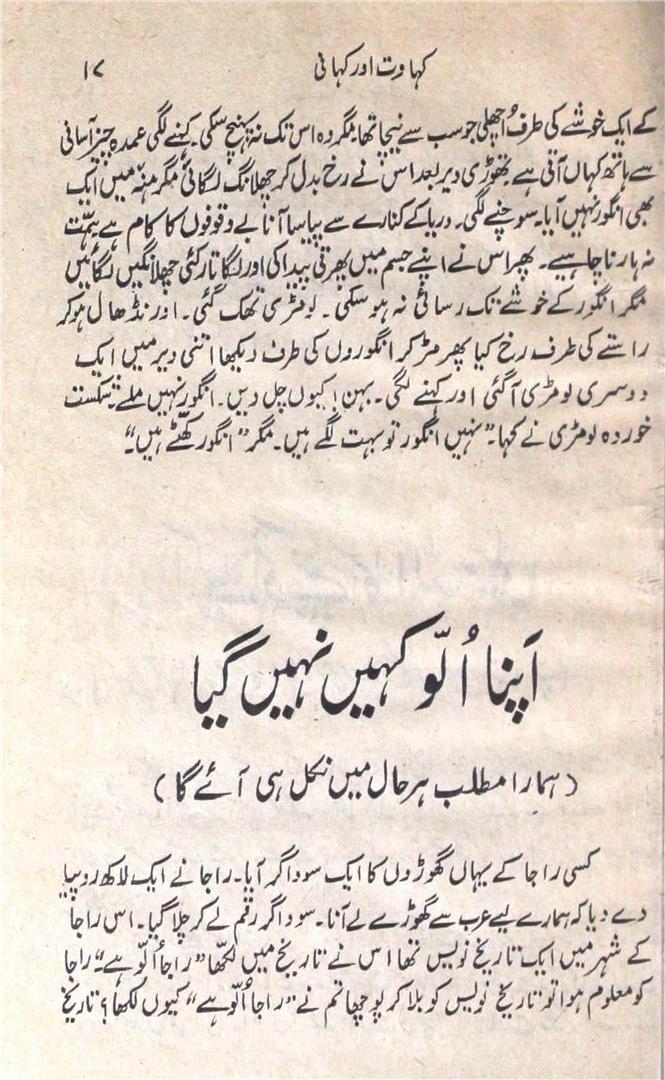 کہاوت اور کہانی
۱۷
کے ایک خوشے کی طرف اُچھلی جو سب سے نیچا تھا۔ مگر وہ اس تک نہ پہنچ سکی۔ کہنے لگی عمدہ چیز آسانی
سے ہاتھ کہاں آتی ہے۔ تھوڑی دیر بعد اس نے رخ بدل کر چھلانگ لگائی مگر منہ میں ایک
بھی انگور نہیں آیا۔ سوچنے لگی۔ دریا کے کنارے سے پیاسا آنا بے وقوفوں کا کام ہے ہمّت
نہ ہارنا چاہیے۔ پھر اس نے اپنے جسم میں پھرتی پیدا کی اور لگاتار کئی چھلانگیں لگائیں
مگر انگور کے خوشے تک رسائی نہ ہوسکی۔ لومڑی تھک گئی۔ اور نڈھال ہوکر
راستے کی طرف رخ کیا پھر مڑ کر انگوروں کی طرف دیکھا اتنی دیر میں ایک
دوسری لومڑی آگئی اور کہنے لگی۔ بہن! کیوں چل دیں۔ انگور نہیں ملے؟ شکست
خوردہ لومڑی نے کہا۔ ”نہیں انگور تو بہت لگے ہیں۔ مگر ”انگور کھٹّے ہیں“۔
اَپنا اُلّو کہیں نہیں گیا
(ہمارا مطلب ہر حال میں نکل ہی آئے گا)
کسی راجا کے یہاں گھوڑوں کا ایک سوداگر آیا۔ راجا نے ایک لاکھ روپیا
دے دیا کہ ہمارے لیے عرب سے گھوڑے لے آنا۔ سوداگر رقم لے کر چلا گیا۔ اس راجا
کے شہر میں ایک تاریخ نویس تھا اس نے تاریخ میں لکھّا ”راجا اُلّو ہے“ راجا
کو معلوم ہوا تو تاریخ نویس کو بلا کر پوچھا تم نے ”راجا اُلّو ہے“ کیوں لکھا؟ تاریخ